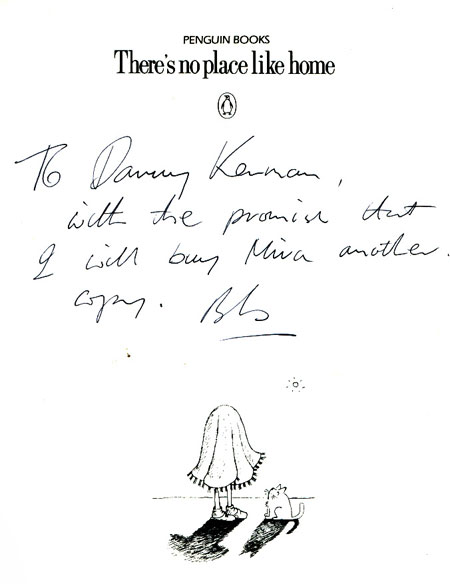 PENGUIN BOOKS
There's no place like home
To Danny Kennan,
with the promise that
I will buy Mira another
copy.